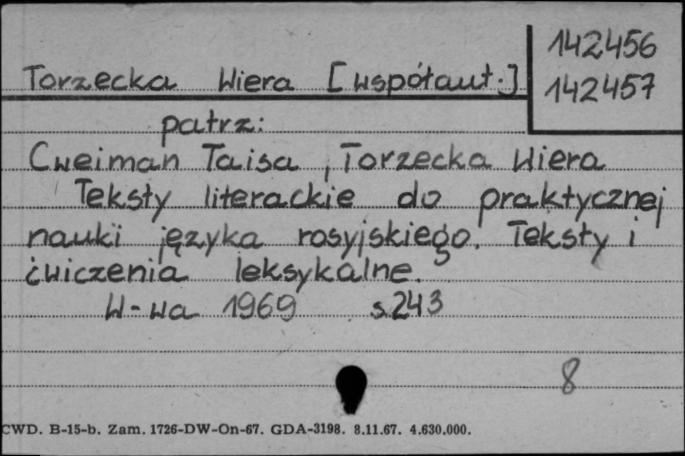 142456
Torzecka Wiera [współaut.]
142457
patrz:
Cweiman Taisa, Torzecka Wiera
Teksty literackie do praktycznej
nauki języka rosyjskiego. Teksty i
ćwiczenia leksykalne.
W-wa 1969 s.243
8
CWD. B-15-b. Zam. 1726-DW-On-67. GDA-3198. 8.11.67. 4.630.000.